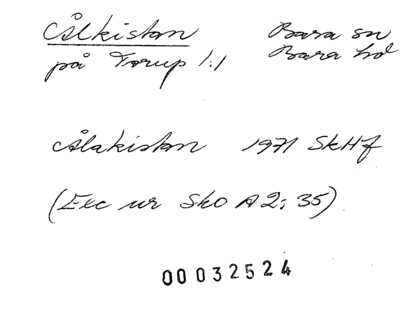 Ålkistan Bara sn
på Torup 1:1 Bara hd
Ålakistan 1971 SkHf
(Exc ur SkO A2: 35)
00032524